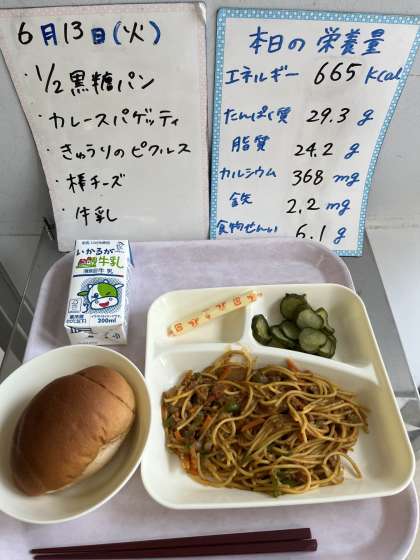 6月13日(火)
・1/2黒糖パン
・カレースパゲッティ
・きゅうりのピクルス
・棒チーズ
・牛乳
本日の栄養量
エネルギー 665 Kcal
たんぱく質 29.3 g
脂質 24.2 g
カルシウム 368 mg
鉄 2.2 mg
食物せんい 6.1 g
いかるが
牛乳
200ml